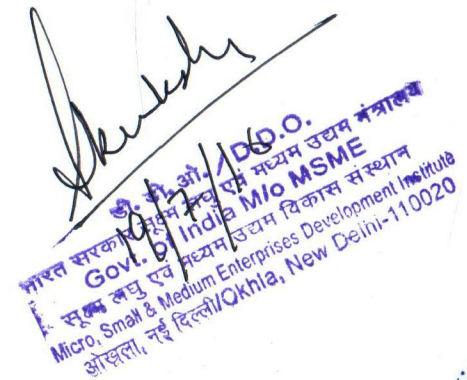 डी. डी. ओ. / D.D.O.
19/7/16
भारत सरकार सूक्ष्म लघु एवं मध्यम उद्यम मंत्रालय
Govt. of India M/o MSME
सूक्ष्म लघु एवं मध्यम उद्यम विकास संस्थान
Micro, Small & Medium Enterprises Development Institute
ओखला, नई दिल्ली/Okhla, New Delhi-110020